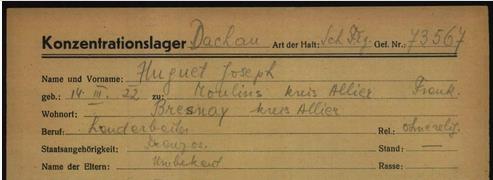 Konzentrationslager Dachau Art der Haft: Sch. Fz. Gef. Nr.: 73567
Name und Vorname: Huguet Joseph
geb.: 14. III. 22 zu: Moulins kreis Allier Frank.
Wohnort: Bresnay kreis Allier
Beruf: Landarbeiter Rel.: ohne relig.
Staatsangehörigkeit: Franzos. Stand: —
Name der Eltern: Unbekant Rasse: